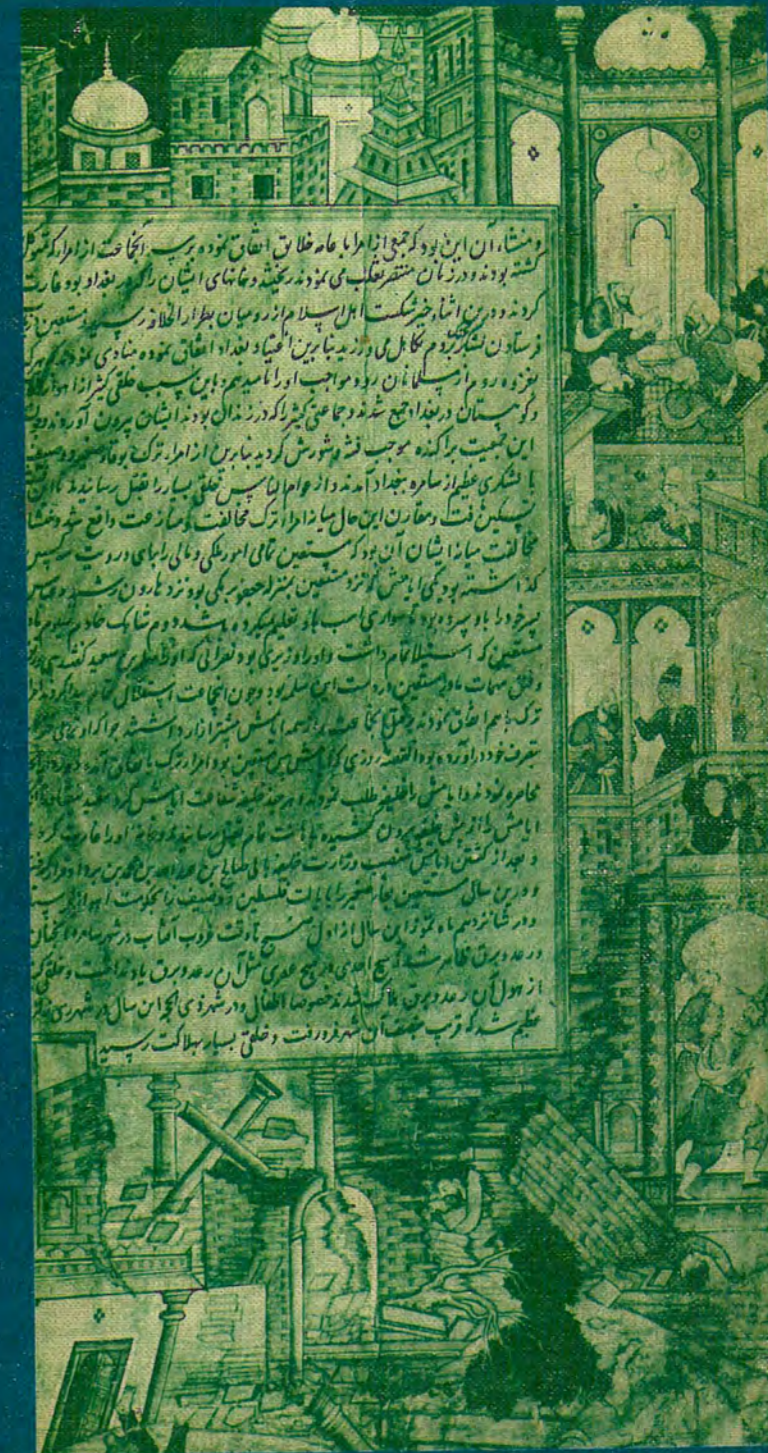 و منشاء آن این بود که جمعی از امرا با عامه خلایق اتفاق نموده بر سر آنجماعت از امرا که متوکل
کشته بودند و در زمان منتصر نموده ریختند و خانهای ایشان را که در بغداد بود غارت
کردند و درین اثناء خبر شکست اهل اسلام از رومیان بدار الخلافه رسید مستعین از
فرستادن لشکر بجنگ روم تکاهل می ورزید بنابرین اغنیاء بغداد اتفاق نموده منادی نمودند که هر که
بغزوه روم از مسلمانان رود مواجب او را ما میدهیم و باین سبب خلقی کثیر از اهواز
و کوهستان در بغداد جمع شدند و جماعتی کثیر را که در زندان بودند ایشان بیرون آوردند
این جمعیت پراکنده موجب فتنه و شورش کردید بنابرین از امرار ترک بوغاء صغیر و وصیف
با لشکری عظیم از سامره ببغداد آمدند و از عوام الناس خلقی بسیار را بقتل رسانیدند تا آن
تسکین یافت و مقارن این حال میانه امراء ترک مخالفت و منازعت واقع شد و منشاء
مخالفت میانه ایشان آن بود که مستعین تمامی امور ملکی و مالی را بای در دست سه کس
کذاشته بود یکی اتامش که نزد مستعین بمنزله جعفر برمکی بود نزد هارون رشید و عباس
پسر خود را باو سپرده بود تا سواری اسب باو تعلیم میکرده باشد دوم شاهک خادم سیوم مادر
مستعین که استیلا تمام داشت و او را وزیری بود نصرانی که او را سلمه بن سعید کفتندی
و فتق مهمات مادر مستعین در دست این سلمه بود و چون آنجماعت استقلال تمام پیدا کردند امراء
ترک با هم اتفاق نمودند از همه اتامش بیشتر ازار داشتند چرا که او
تصرف خود در آورده بود القصه روزی که اتامش پیش مستعین بود امرار ترک باتفاق آمده
محاصره نمودند و اتامش را از خلیفه طلب نمودند هر چند خلیفه شفاعت اتامش کرد مفید نیفتاد
اتامش را از پیش خلیفه بیرون کشیده باهانت تمام بقتل رسانیدند و خانه او را غارت کردند
و بعد از کشتن اتامش منصب وزارت خلیفه بابی صالح بن عبد الله بن محمد بن یزداد قرار گرفت
و درین سال مستعین بغاء صغیر را بایالت فلسطین و وصیف را بحکومت اهواز
و در شانزدهم ماه تموز این سال از اول صبح تا وقت غروب آفتاب در شهر سامره آنچنان
رعد و برق ظاهر شد که هیچ احدی در هیچ عهدی مثل آن رعد و برق یاد نداشت و خلقی کثیر
از هول آن رعد و برق هلاک شدند خصوصا اطفال و در شهر ذی الحجه این سال در شهر ری زلزله
عظیم شد که قریب بنصف آن شهر فرو رفت و خلقی بسیار بهلاکت رسید